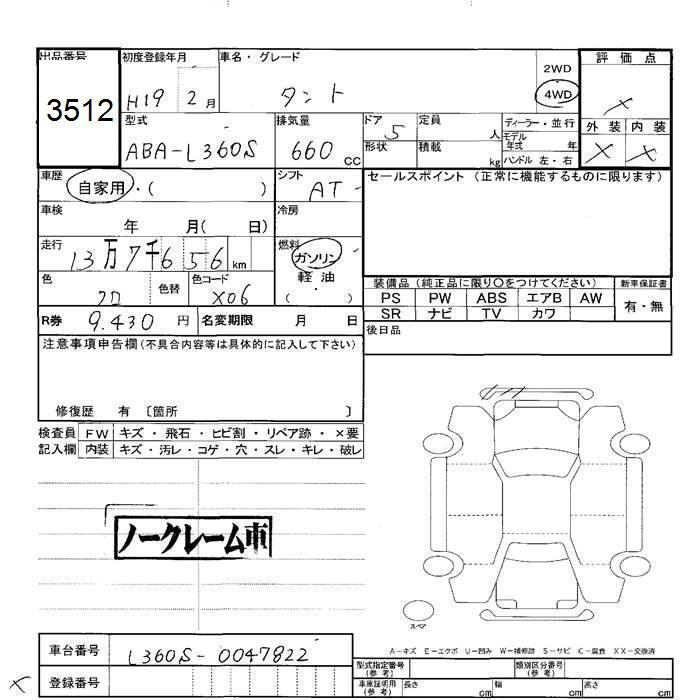 出品番号
3512
初度登録年月
H19 2月
車名・グレード
タント
2WD
4WD
評価点
×
外装 内装
× ×
型式
ABA-L360S
排気量
660 CC
ドア
5
形状
定員
人
積載
kg
ディーラー・並行
モデル年式 年
ハンドル 左・右
車歴
自家用・( )
シフト
AT
セールスポイント(正常に機能するものに限ります)
車検
年 月( 日)
冷房
走行
13万7千656 km
燃料
ガソリン
軽油
( )
色
クロ
色替
色コード
X06
装備品(純正品に限り○をつけてください)
PS PW ABS エアB AW
SR ナビ TV カワ
新車保証書
有・無
R券 9.430 円 名変期限 月 日
後日品
注意事項申告欄(不具合内容等は具体的に記入して下さい)
修復歴 有 〔箇所 〕
検査員 FW キズ・飛石・ヒビ割・リペア跡・×要
記入欄 内装 キズ・汚レ・コゲ・穴・スレ・キレ・破レ
ノークレーム車
スペア
A-キズ E-エクボ U-凹み W-補修跡 S-サビ C-腐食 XX-交換済
車台番号 L360S-0047822
登録番号
×
型式指定番号(参考)
類別区分番号(参考)
車庫証明用(参考) 長さ cm 幅 cm 高さ cm